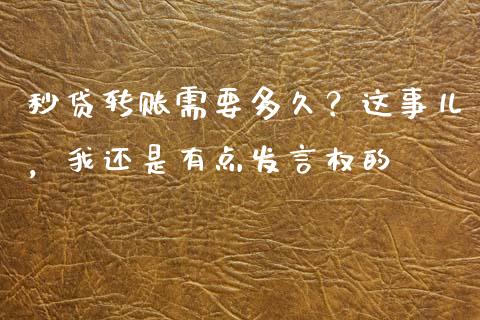 秒贷转账需要多久？这事儿
，我还是有点发言权的